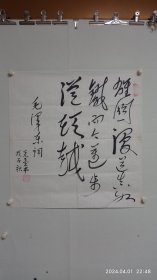 雄關漫道真如
鐵而今邁步
從頭越
毛澤東詞
2024.04.01 22:48